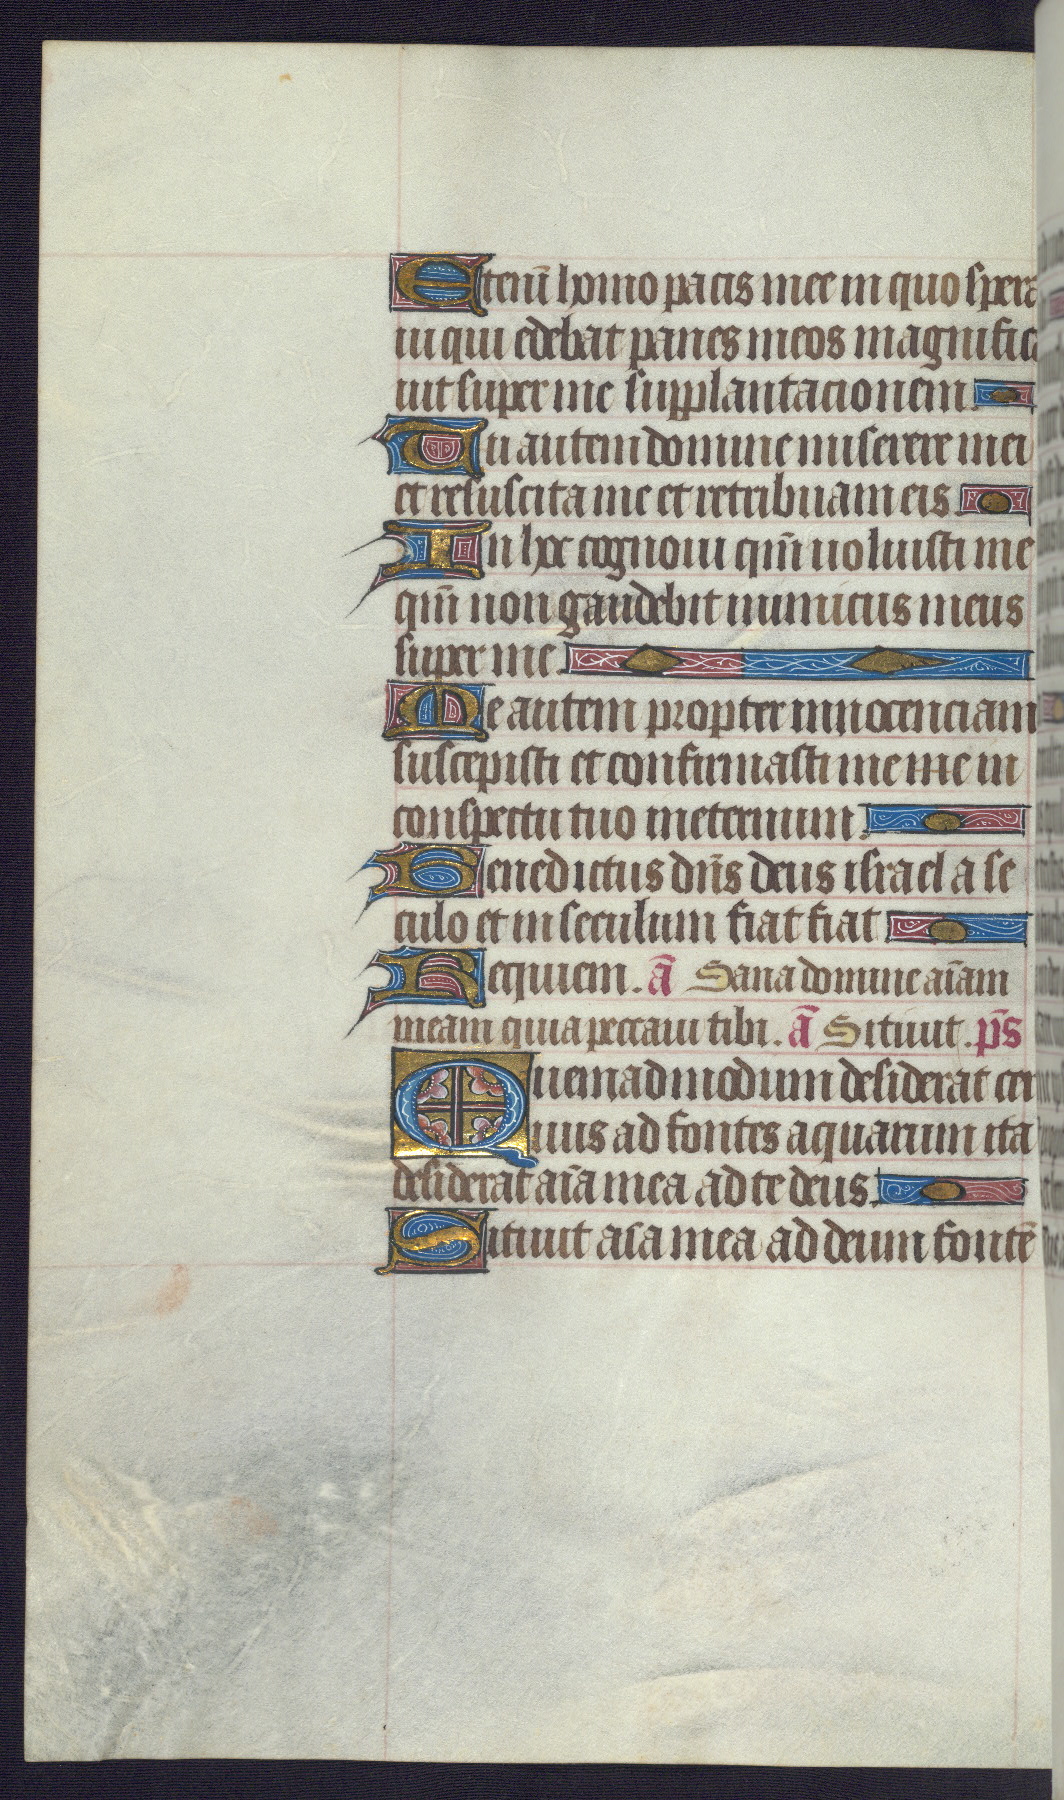 Etenī homo pacis mee in quo spera
ui qui edebat panes meos magnifica
uit super me supplantacionem.
Tu autem domine miserere mei
et resuscita me et retribuam eis.
In hoc cognoui qm̄ uoluisti me
qm̄ non gaudebit inimicus meus
super me.
Me autem propter innocenciam
suscepisti et confirmasti me me in
conspectu tuo in eternum.
Benedictus dn̄s deus israel a se
culo et in seculum fiat fiat
Requiem. ā Sana domine aīam
meam quia peccaui tibi. ā Sitiuit. p̄s
Quemadmodum desiderat cer
uus ad fontes aquarum ita
desiderat aīa mea ad te deus.
Sitiuit aīa mea ad deum fontē